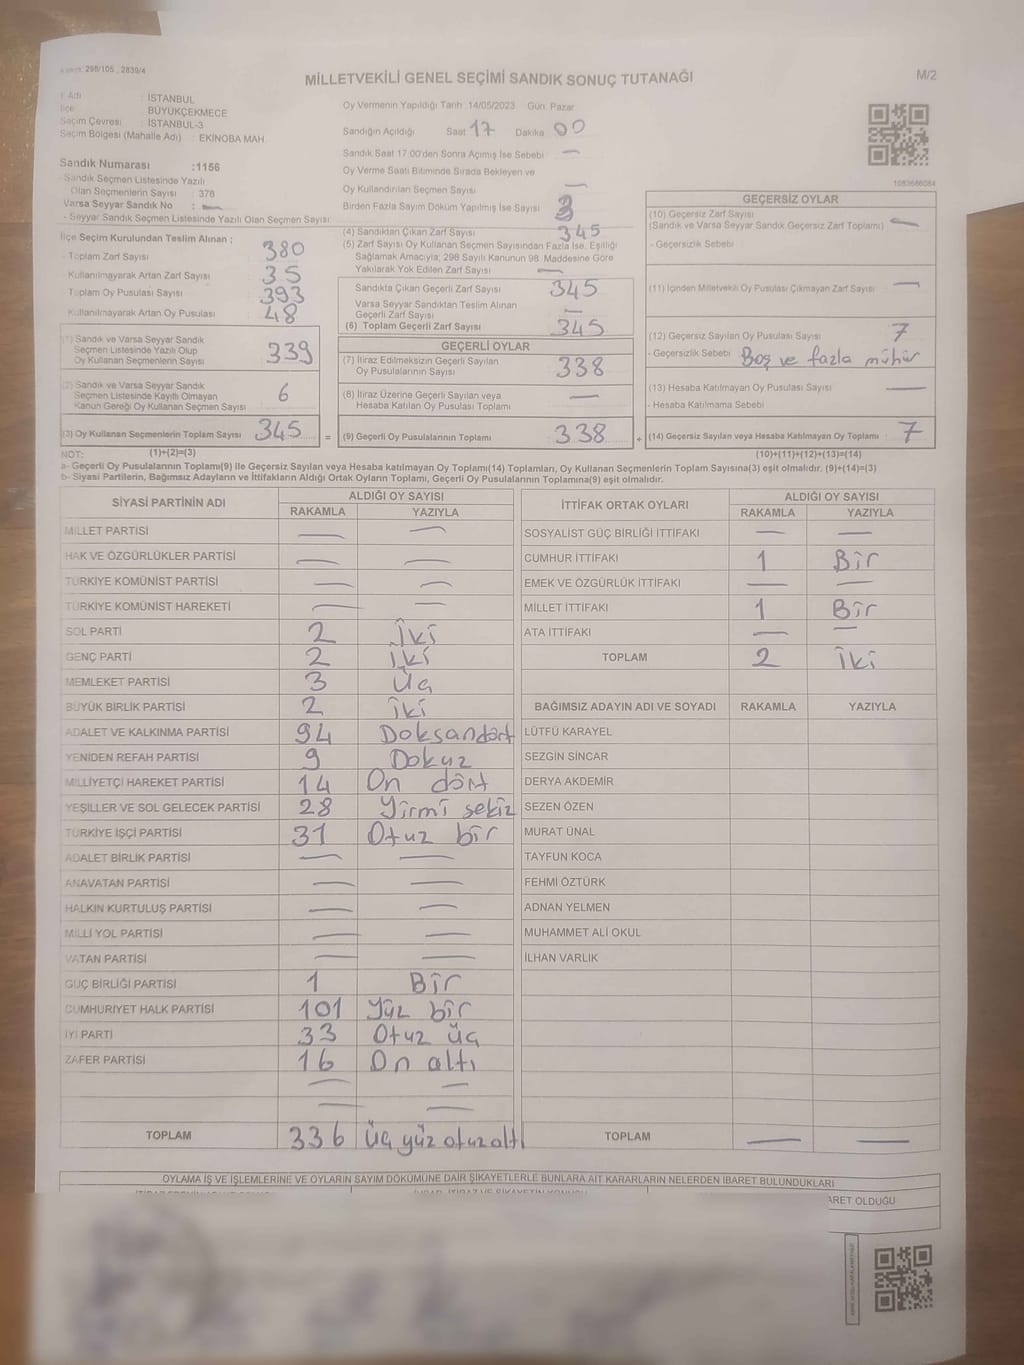 298/105 , 2839/4
MİLLETVEKİLİ GENEL SEÇİMİ SANDIK SONUÇ TUTANAĞI
M/2
İl Adı : İSTANBUL
İlçe : BÜYÜKÇEKMECE
Seçim Çevresi : İSTANBUL-3
Seçim Bölgesi (Mahalle Adı) : EKİNOBA MAH.
Oy Vermenin Yapıldığı Tarih :14/05/2023 Gün: Pazar
Sandığın Açıldığı Saat 17 Dakika 00
Sandık Saat 17:00'den Sonra Açımış İse Sebebi : —
Oy Verme Saati Bitiminde Sırada Bekleyen ve
Oy Kullandırılan Seçmen Sayısı —
Birden Fazla Sayım Döküm Yapılmış İse Sayısı 3
Sandık Numarası :1156
- Sandık Seçmen Listesinde Yazılı
Olan Seçmenlerin Sayısı : 378
Varsa Seyyar Sandık No : —
- Seyyar Sandık Seçmen Listesinde Yazılı Olan Seçmen Sayısı :
1083686084
İlçe Seçim Kurulundan Teslim Alınan ;
- Toplam Zarf Sayısı 380
- Kullanılmayarak Artan Zarf Sayısı 35
- Toplam Oy Pusulası Sayısı 393
- Kullanılmayarak Artan Oy Pusulası 48
(1) Sandık ve Varsa Seyyar Sandık
Seçmen Listesinde Yazılı Olup
Oy Kullanan Seçmenlerin Sayısı 339
(2) Sandık ve Varsa Seyyar Sandık
Seçmen Listesinde Kayıtlı Olmayan
Kanun Gereği Oy Kullanan Seçmen Sayısı 6
(3) Oy Kullanan Seçmenlerin Toplam Sayısı 345 =
(4) Sandıktan Çıkan Zarf Sayısı 345
(5) Zarf Sayısı Oy Kullanan Seçmen Sayısından Fazla İse, Eşitliği
Sağlamak Amacıyla; 298 Sayılı Kanunun 98. Maddesine Göre
Yakılarak Yok Edilen Zarf Sayısı —
Sandıkta Çıkan Geçerli Zarf Sayısı 345
Varsa Seyyar Sandıktan Teslim Alınan
Geçerli Zarf Sayısı —
(6) Toplam Geçerli Zarf Sayısı 345
GEÇERLİ OYLAR
(7) İtiraz Edilmeksizin Geçerli Sayılan
Oy Pusulalarının Sayısı 338
(8) İtiraz Üzerine Geçerli Sayılan veya
Hesaba Katılan Oy Pusulası Toplamı —
(9) Geçerli Oy Pusulalarının Toplamı 338 +
GEÇERSİZ OYLAR
(10) Geçersiz Zarf Sayısı
(Sandık ve Varsa Seyyar Sandık Geçersiz Zarf Toplamı) —
- Geçersizlik Sebebi
(11) İçinden Milletvekili Oy Pusulası Çıkmayan Zarf Sayısı —
(12) Geçersiz Sayılan Oy Pusulası Sayısı 7
- Geçersizlik Sebebi Boş ve fazla mühür
(13) Hesaba Katılmayan Oy Pusulası Sayısı —
- Hesaba Katılmama Sebebi
(14) Geçersiz Sayılan veya Hesaba Katılmayan Oy Toplamı 7
NOT: (1)+(2)=(3) (10)+(11)+(12)+(13)=(14)
a- Geçerli Oy Pusulalarının Toplamı(9) ile Geçersiz Sayılan veya Hesaba katılmayan Oy Toplamı(14) Toplamları, Oy Kullanan Seçmenlerin Toplam Sayısına(3) eşit olmalıdır. (9)+(14)=(3)
b- Siyasi Partilerin, Bağımsız Adayların ve İttifakların Aldığı Ortak Oyların Toplamı, Geçerli Oy Pusulalarının Toplamına(9) eşit olmalıdır.
SİYASİ PARTİNİN ADI ALDIĞI OY SAYISI
RAKAMLA YAZIYLA
MİLLET PARTİSİ — —
HAK VE ÖZGÜRLÜKLER PARTİSİ — —
TÜRKİYE KOMÜNİST PARTİSİ — —
TÜRKİYE KOMÜNİST HAREKETİ — —
SOL PARTİ 2 İki
GENÇ PARTİ 2 İki
MEMLEKET PARTİSİ 3 Üç
BÜYÜK BİRLİK PARTİSİ 2 iki
ADALET VE KALKINMA PARTİSİ 94 Doksandört
YENİDEN REFAH PARTİSİ 9 Dokuz
MİLLİYETÇİ HAREKET PARTİSİ 14 On dört
YEŞİLLER VE SOL GELECEK PARTİSİ 28 Yirmi sekiz
TÜRKİYE İŞÇİ PARTİSİ 31 Otuz bir
ADALET BİRLİK PARTİSİ — —
ANAVATAN PARTİSİ — —
HALKIN KURTULUŞ PARTİSİ — —
MİLLİ YOL PARTİSİ — —
VATAN PARTİSİ — —
GÜÇ BİRLİĞİ PARTİSİ 1 Bir
CUMHURİYET HALK PARTİSİ 101 Yüz bir
İYİ PARTİ 33 Otuz üç
ZAFER PARTİSİ 16 On altı
— —
— —
TOPLAM 336 Üç yüz otuz altı
İTTİFAK ORTAK OYLARI ALDIĞI OY SAYISI
RAKAMLA YAZIYLA
SOSYALİST GÜÇ BİRLİĞİ İTTİFAKI — —
CUMHUR İTTİFAKI 1 Bir
EMEK VE ÖZGÜRLÜK İTTİFAKI — —
MİLLET İTTİFAKI 1 Bir
ATA İTTİFAKI — —
TOPLAM 2 İki
BAĞIMSIZ ADAYIN ADI VE SOYADI RAKAMLA YAZIYLA
LÜTFÜ KARAYEL
SEZGİN SİNCAR
DERYA AKDEMİR
SEZEN ÖZEN
MURAT ÜNAL
TAYFUN KOCA
FEHMİ ÖZTÜRK
ADNAN YELMEN
MUHAMMET ALİ OKUL
İLHAN VARLIK
TOPLAM — —
OYLAMA İŞ VE İŞLEMLERİNE VE OYLARIN SAYIM DÖKÜMÜNE DAİR ŞİKAYETLERLE BUNLARA AİT KARARLARIN NELERDEN İBARET BULUNDUKLARI
ARET OLDUĞU